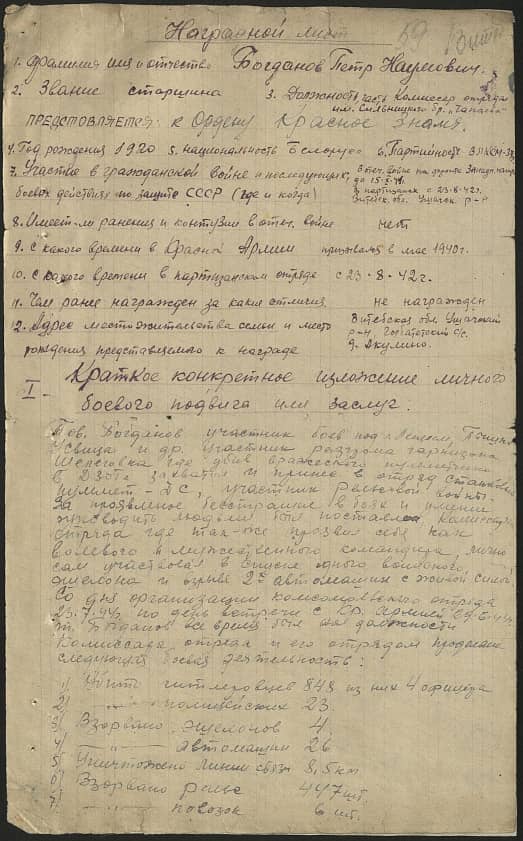 Наградной лист
1. Фамилия имя и отчество Богданов Петр Наумович.
2. Звание старшина 3. Должность комиссар отряда
ПРЕДСТАВЛЯЕТСЯ к Ордену Красное Знамя.
4. Год рождения 1920 5. национальность Белорус 6. Партийность
7. Участие в гражданской войне и последующих
боевых действиях по защите СССР (где и когда) в партизанах с 23-8-42г.
8. Имеет-ли ранения и контузии в отеч. войне нет
9. С какого времени в Красной Армии призывался в мае 1940г.
10. с какого времени в партизанском отряде с 23-8-42г.
11. Чем ранее награжден за какие отличия не награжден
12. Адрес местожительства семьи и место Витебская обл. Ушачский
рождения представляемого к награде р-н
I Краткое конкретное изложение личного
боевого подвига или заслуг.
Тов. Богданов участник боев под
и др. участник разгрома гарнизона
где убив вражеского пулеметчика
в ДЗОТе захватил и принес в отряд
пулемет участник рельсовой войны.
За проявленное бесстрашие в боях и умение
руководить людьми был поставлен комиссаром
отряда где так-же проявил себя как
волевого и мужественного командира, лично
сам участвовал в спуске одного воинского
эшелона и взрыве 2х автомашин с живой силой.
Со дня организации комсомольского отряда
по день встречи с Кр. Армией
т. Богданов все время был на должности
Комиссара отряда и его отрядом проделана
следующая боевая деятельность:
1) Убито гитлеровцев 848 из них 4 офицера
2) —"— полицейских 23.
3) Взорвано эшелонов 4
4) —"— автомашин 26
5) Уничтожено линии связи 8,5 км
6) Взорвано рельс 447 шт.
7) —"— повозок 6 шт.